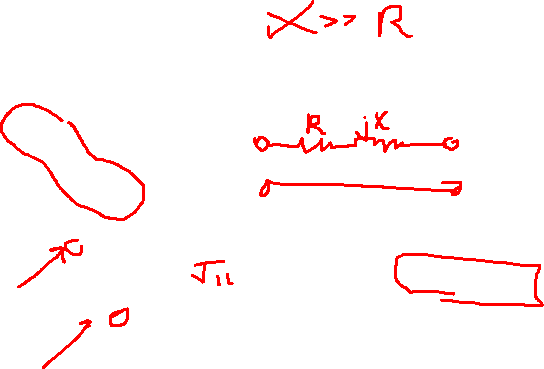 X >> R
R jX
J11